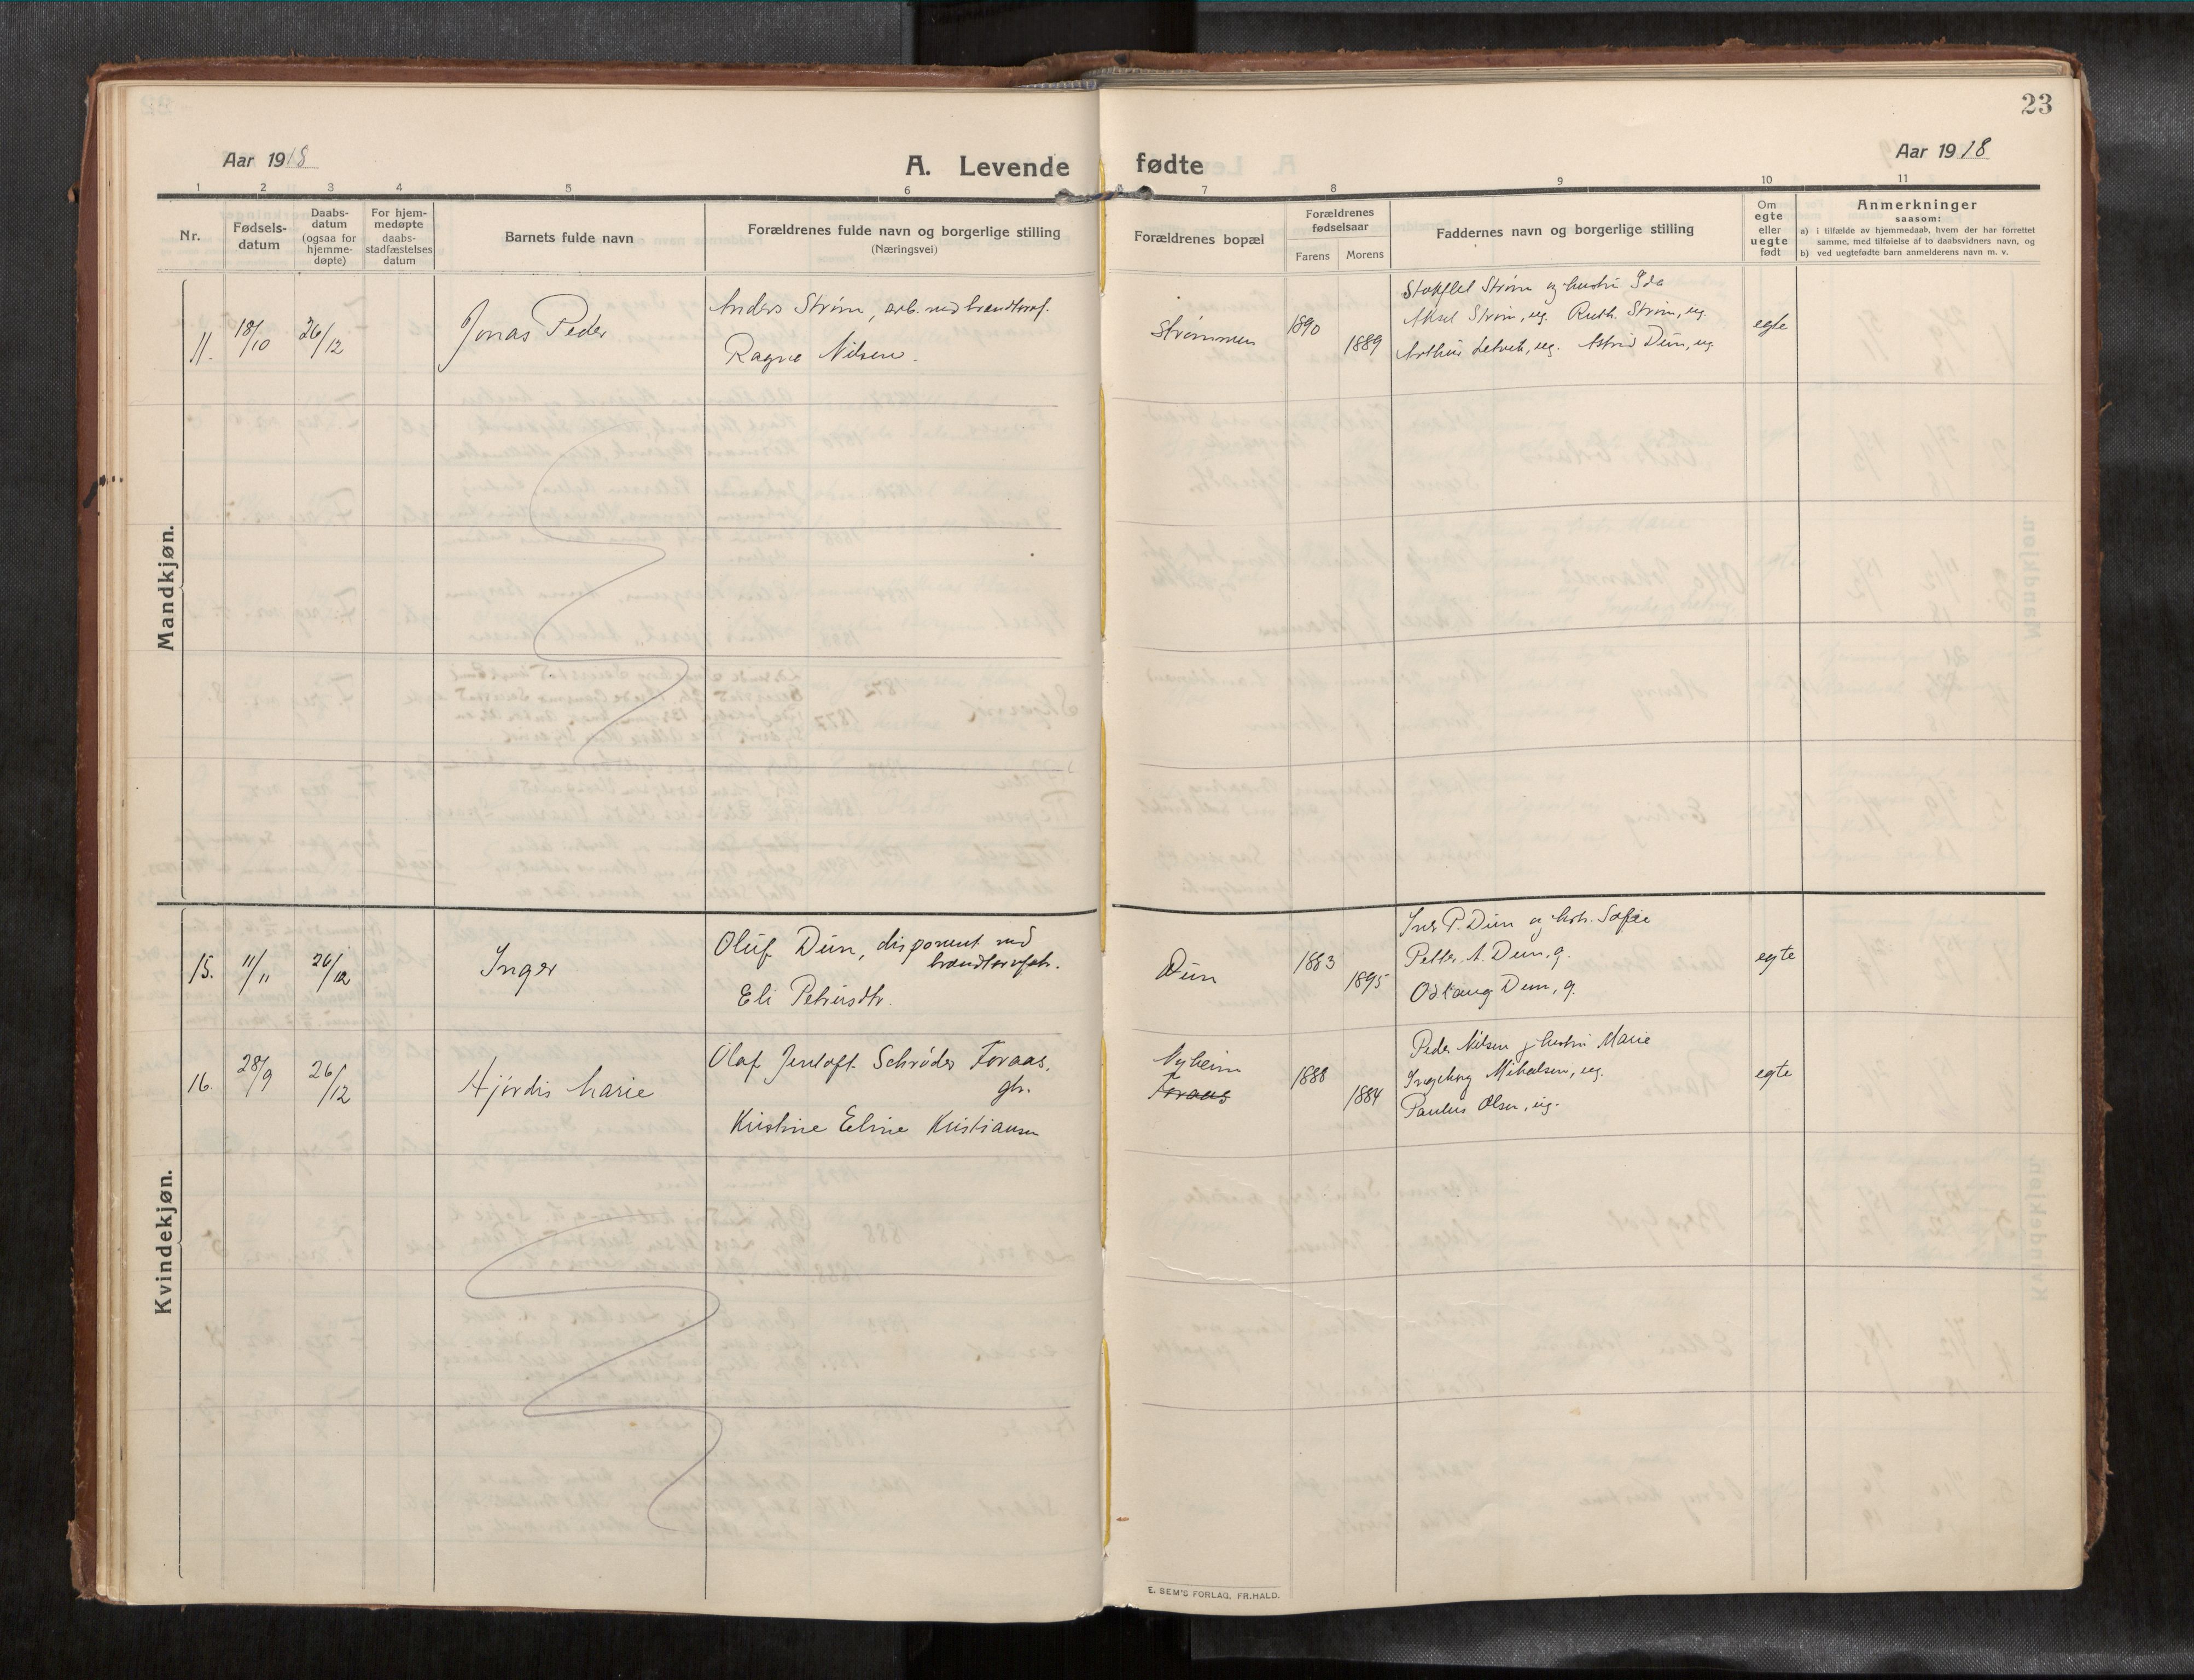 23
Aar 1918
A. Levende fødte
Aar 1918
1 2 3 4 5 6 7 8 9 10 11
Nr.
Fødsels-
datum
Daabs-
datum
(ogsaa for
hjemme-
døpte)
For hjem-
medøpte
daabs-
stadfæstelses
datum
Barnets fulde navn
Forældrenes fulde navn og borgerlige stilling
(Næringsvei)
Forældrenes bopæl
Forældrenes
fødselsaar
Farens Morens
Faddernes navn og borgerlige stilling
Om
egte
eller
uegte
født
Anmerkninger
saasom:
a) i tilfælde av hjemmedaab, hvem der har forrettet
samme, med tilføielse af to daabsvidners navn, og
b) ved uegtefødte barn anmelderens navn m. v.
Mandkjøn.
11. 18/10 26/12 Jonas Peder
Anders Strøm, arb. ved
Ragna Nilsen.
Strømmen 1890 1889
Strøm og hustru Ida
Aksel Strøm, ug. Ruth Strøm, ug.
Arthur ug. Astrid Dun, ug.
egte
Kvindekjøn.
15. 11/11 26/12 Inger
Oluf Dun, disponent ved
Eli Petrusdtr.
Dun 1883 1895
P. Dun og hstr. Sofie
Petter A. Dun, g.
Odlaug Dun, g.
egte
16. 28/9 26/12 Hjördis Marie
Olaf Jentoft Schrøder Foraas,
gbr.
Kristine Eline Kristiansen
Nyheim
Foraas
1888 1884
Peder Nilsen og hustru Marie
Ingeborg Mikalsen, ug.
Paulus Olsen, ug.
egte
E. SEM'S FORLAG, FR.HALD.